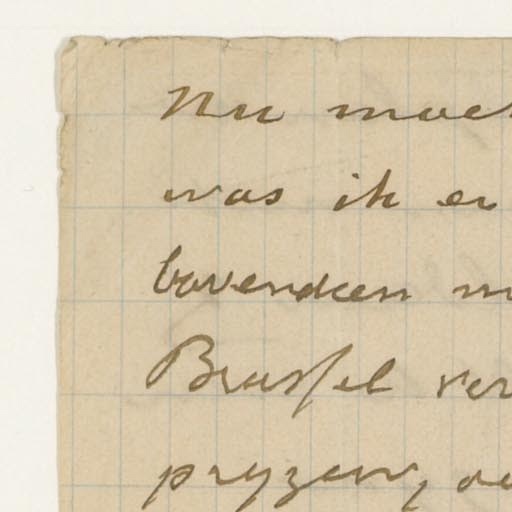 Nu moet
was ik er
bovendien m
Brussel ver
pryzen, de